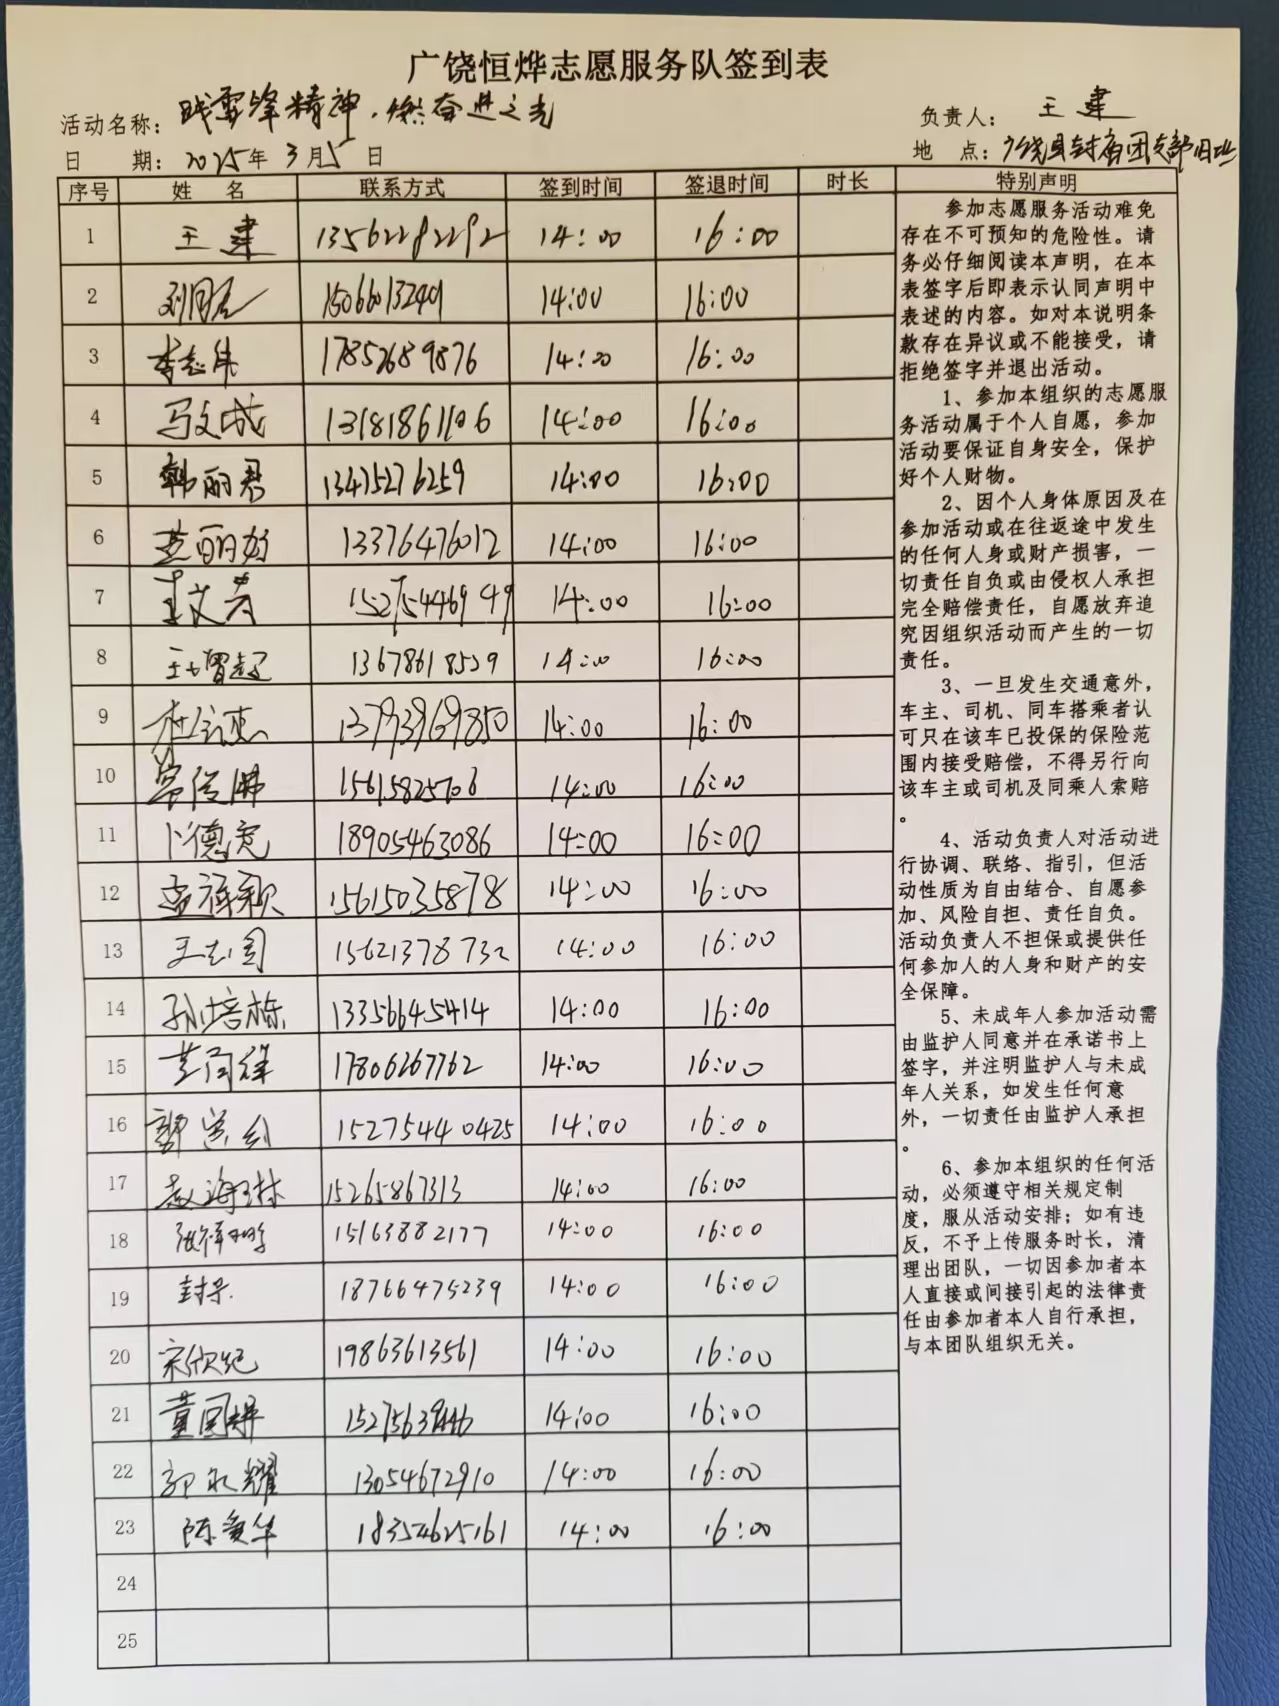 广饶恒烨志愿服务队签到表
活动名称：践雷锋精神，燃奋进之光
负责人：王建
日 期：2025年3月5日
地 点：广饶县封庙团支部旧址
序号 姓 名 联系方式 签到时间 签退时间 时长
1 王建 13562282292 14:00 16:00
2 15066132401 14:00 16:00
3 李志伟 17852689876 14:00 16:00
4 马文成 13181861106 14:00 16:00
5 韩丽君 13475276259 14:00 16:00
6 13376476012 14:00 16:00
7 15275446949 14:00 16:00
8 13678618529 14:00 16:00
9 13793969850 14:00 16:00
10 15615825706 14:00 16:00
11 18905463086 14:00 16:00
12 15615035878 14:00 16:00
13 15621378732 14:00 16:00
14 孙培栋 13356645414 14:00 16:00
15 17806267762 14:00 16:00
16 15275440425 14:00 16:00
17 15265867313 14:00 16:00
18 15163882177 14:00 16:00
19 18766475239 14:00 16:00
20 宋欣纪 19863613561 14:00 16:00
21 14:00 16:00
22 郭永耀 13054672910 14:00 16:00
23 陈爱华 18354625161 14:00 16:00
24
25
特别声明
参加志愿服务活动难免
存在不可预知的危险性。请
务必仔细阅读本声明，在本
表签字后即表示认同声明中
表述的内容。如对本说明条
款存在异议或不能接受，请
拒绝签字并退出活动。
1、参加本组织的志愿服
务活动属于个人自愿，参加
活动要保证自身安全，保护
好个人财物。
2、因个人身体原因及在
参加活动或在往返途中发生
的任何人身或财产损害，一
切责任自负或由侵权人承担
完全赔偿责任，自愿放弃追
究因组织活动而产生的一切
责任。
3、一旦发生交通意外，
车主、司机、同车搭乘者认
可只在该车已投保的保险范
围内接受赔偿，不得另行向
该车主或司机及同乘人索赔
。
4、活动负责人对活动进
行协调、联络、指引，但活
动性质为自由结合、自愿参
加、风险自担、责任自负。
活动负责人不担保或提供任
何参加人的人身和财产的安
全保障。
5、未成年人参加活动需
由监护人同意并在承诺书上
签字，并注明监护人与未成
年人关系，如发生任何意
外，一切责任由监护人承担
。
6、参加本组织的任何活
动，必须遵守相关规定制
度，服从活动安排；如有违
反，不予上传服务时长，清
理出团队，一切因参加者本
人直接或间接引起的法律责
任由参加者本人自行承担，
与本团队组织无关。